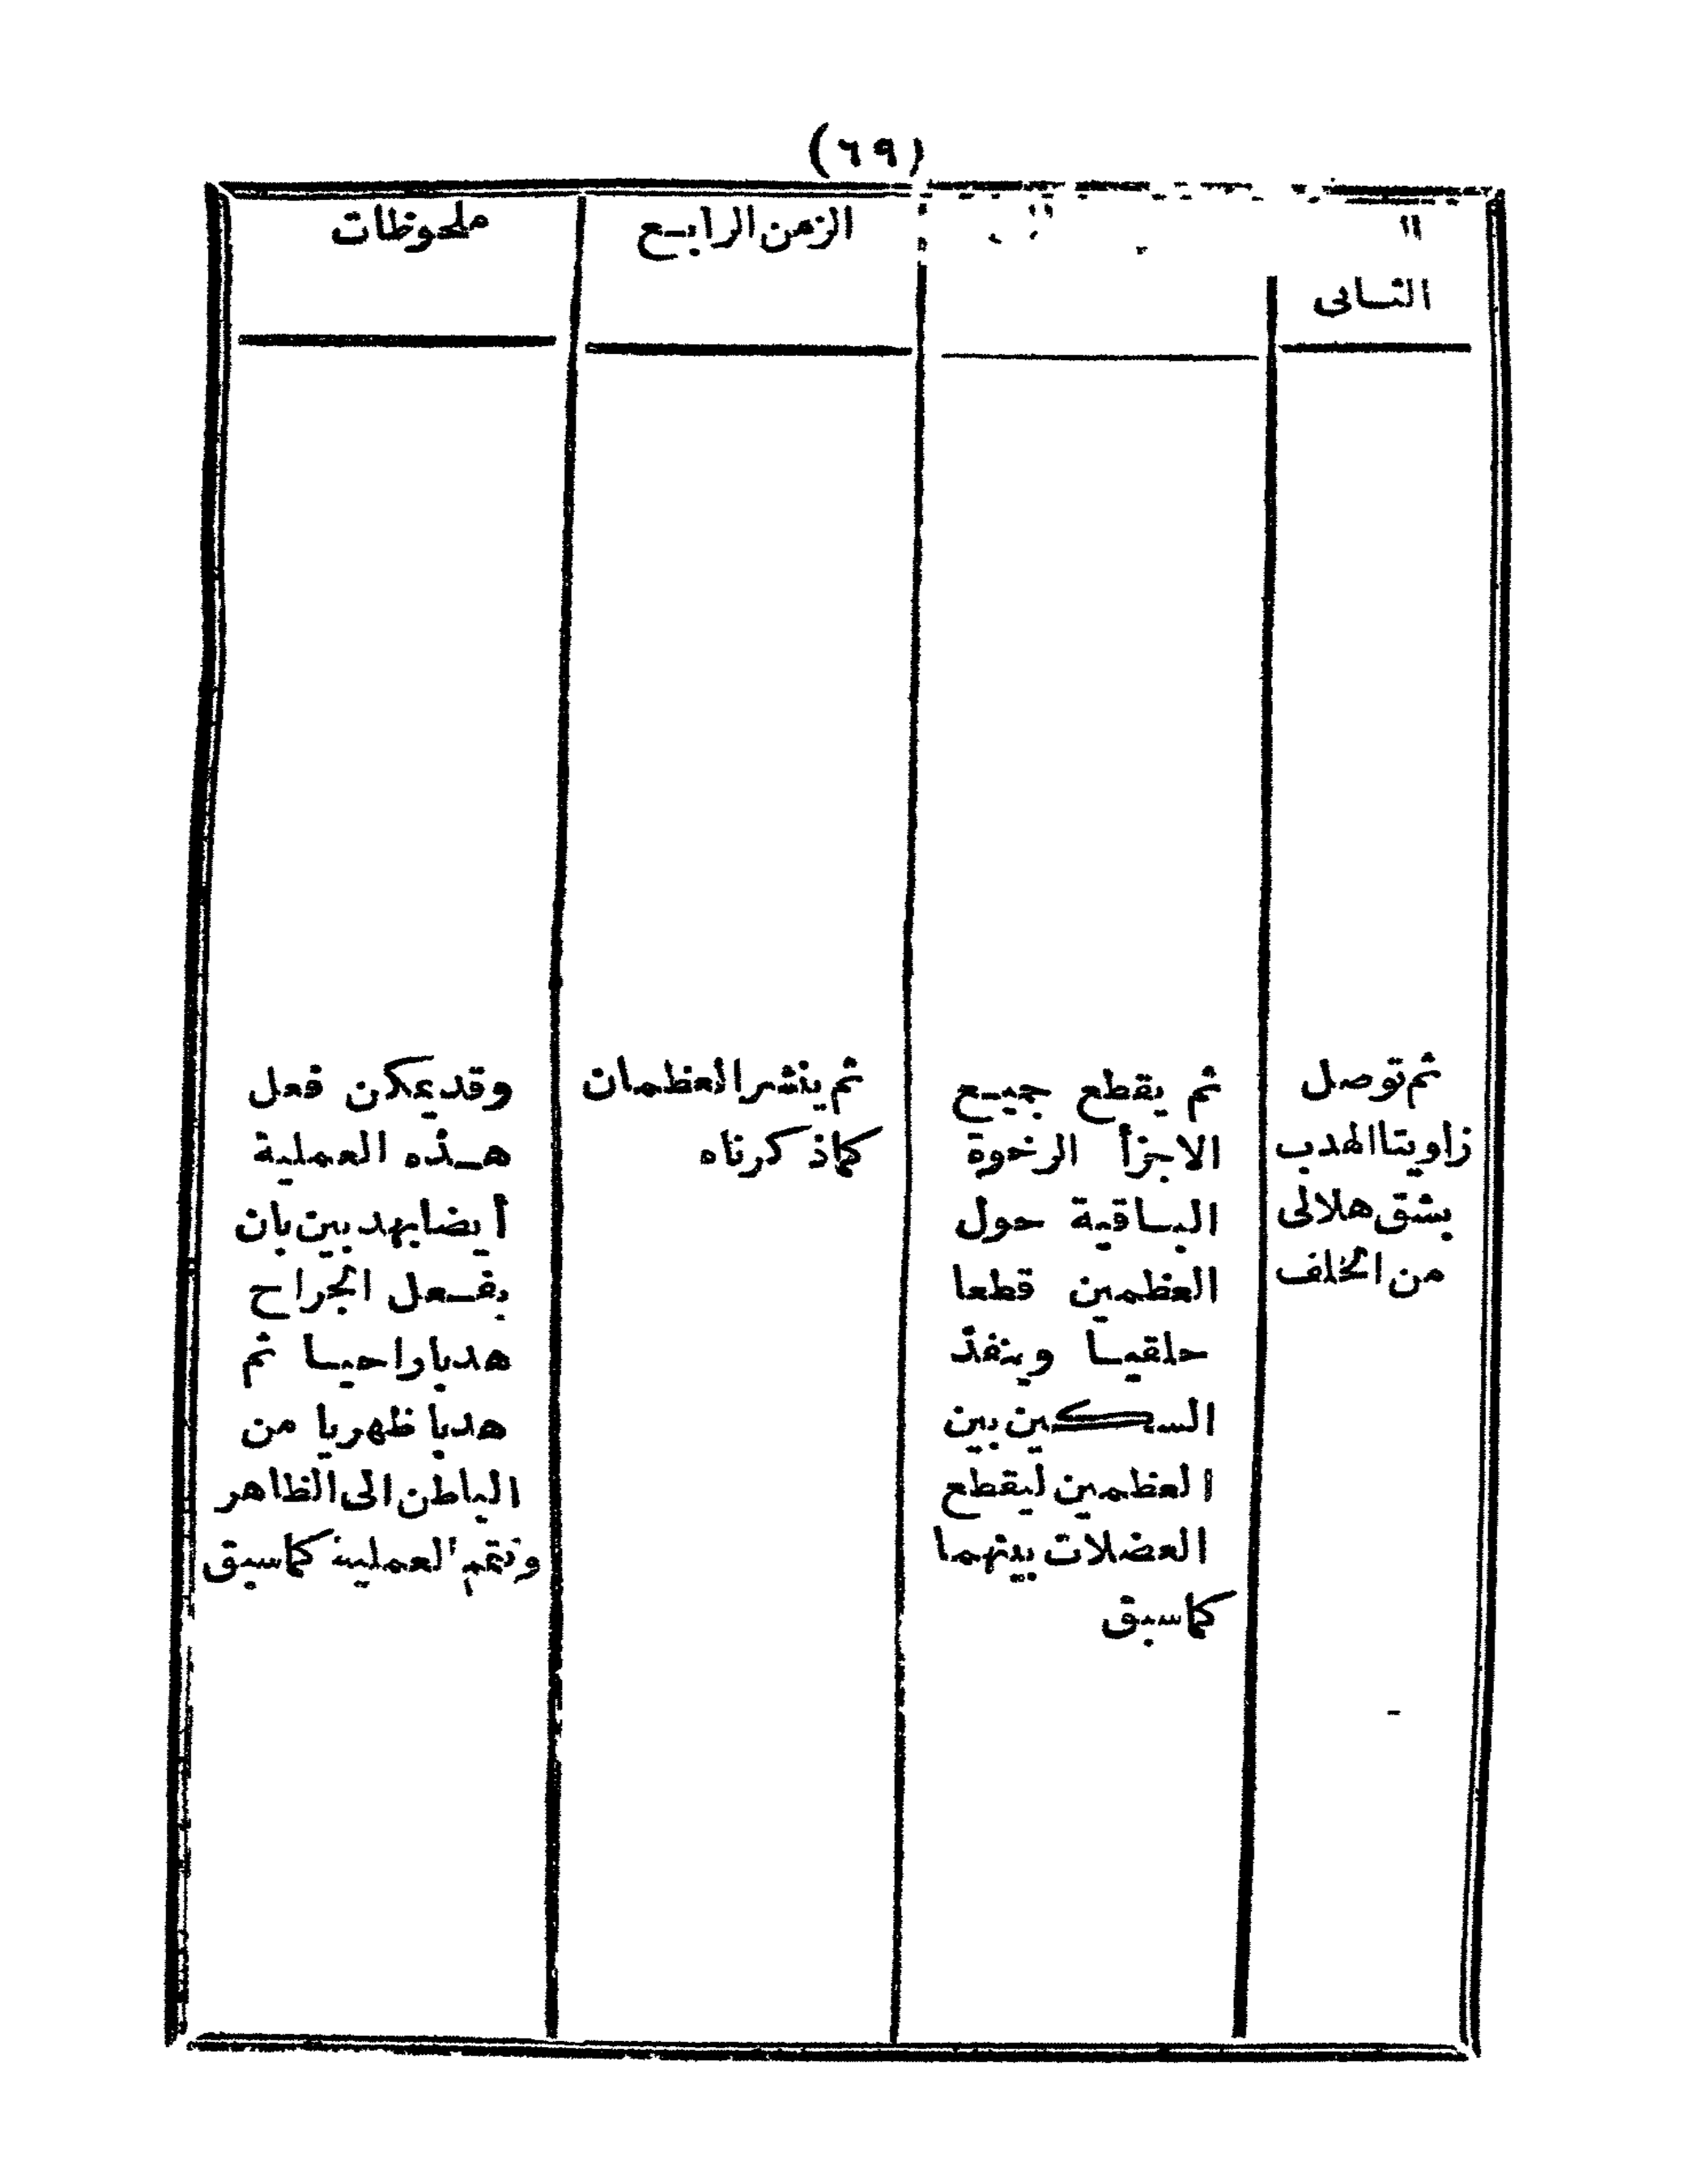 (٦٩)
الثانى
ثم توصل
زاويتا الهدب
بشق هلالى
من الخلف
ثم يقطع جميع
الاجزأ الرخوة
الباقية حول
العظمين قطعا
حلقيا وينفذ
السكين بين
العظمين ليقطع
العضلات بينهما
كماسبق
الزمن الرابع
ثم ينشر العظمان
كماذكرناه
ملحوظات
وقد يمكن فعل
هذه العملية
أيضا بهدبين بان
يفعل الجراح
هدبا راحيا ثم
هدبا ظهريا من
الباطن الى الظاهر
وتتم العملية كماسبق